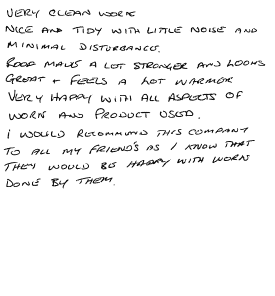 VERY CLEAN WORK
NICE AND TIDY WITH LITTLE NOISE AND
MINIMAL DISTURBANCE.
ROOF MAKES A LOT STRONGER AND LOOKS
GREAT + FEELS A LOT WARMER
VERY HAPPY WITH ALL ASPECTS OF
WORK AND PRODUCT USED.
I WOULD RECOMMEND THIS COMPANY
TO ALL MY FRIEND'S AS I KNOW THAT
THEY WOULD BE HAPPY WITH WORK
DONE BY THEM.